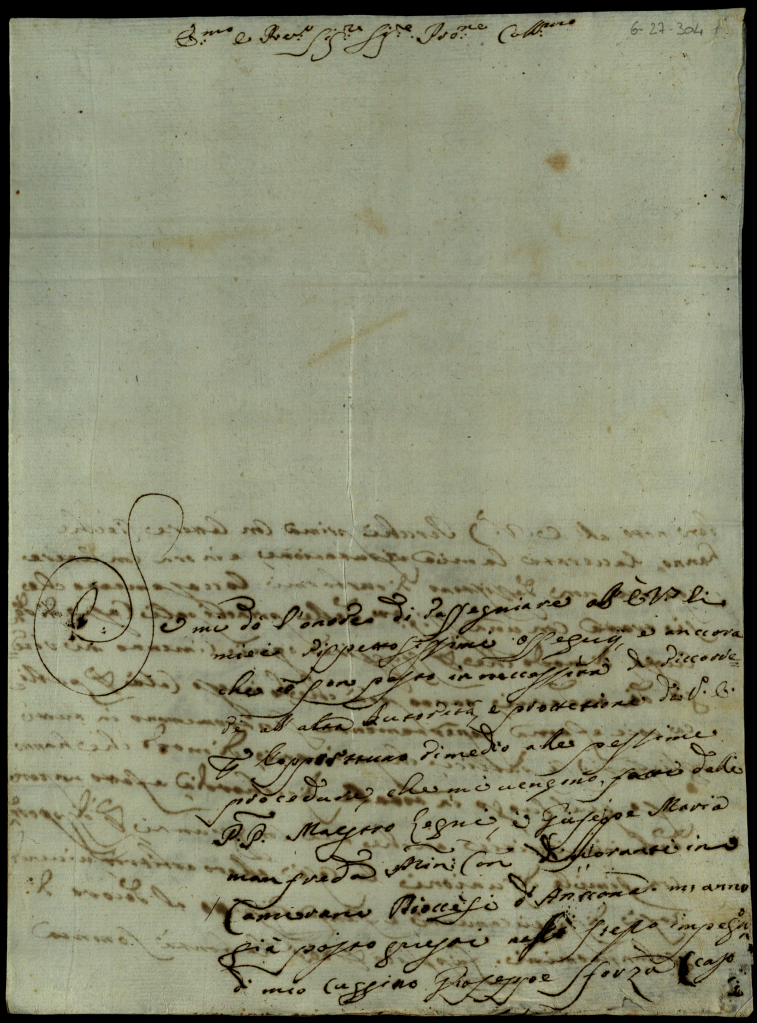 E.mo e Rev.o Sig.re Sig.re Pro.ne Coll.mo
6-27-304 1
Se mi do l'onore di rassegniare all'E V. li
miei rippettosissimi ossequij, e ancora
che io son posto in neccessità di riccorre=
re all'alta autorità, e protettione di V. E.
p l'opportuno rimedio alle pessime
procedure, che mi vengino fatte dalli
P.P. Maestro Legni, e Giuseppe Maria
Manfreda Min: Con: dimoranti in
Camerano Diocesi d'Ancona. mi anno
già posto questi nello stesso impegno
di mio Cuggino Gioseppe Sforza (caso